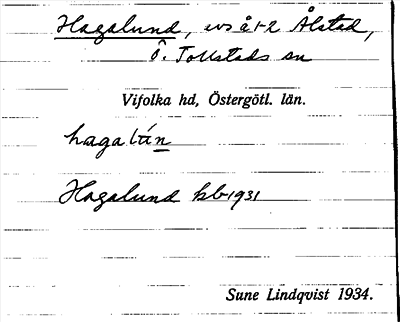 Hagalund, evs å 1-2 Ålstad,
Ö. Tollstads sn
Vifolka hd, Östergötl. län.
hagalún
Hagalund kb 1931
Sune Lindqvist 1934.